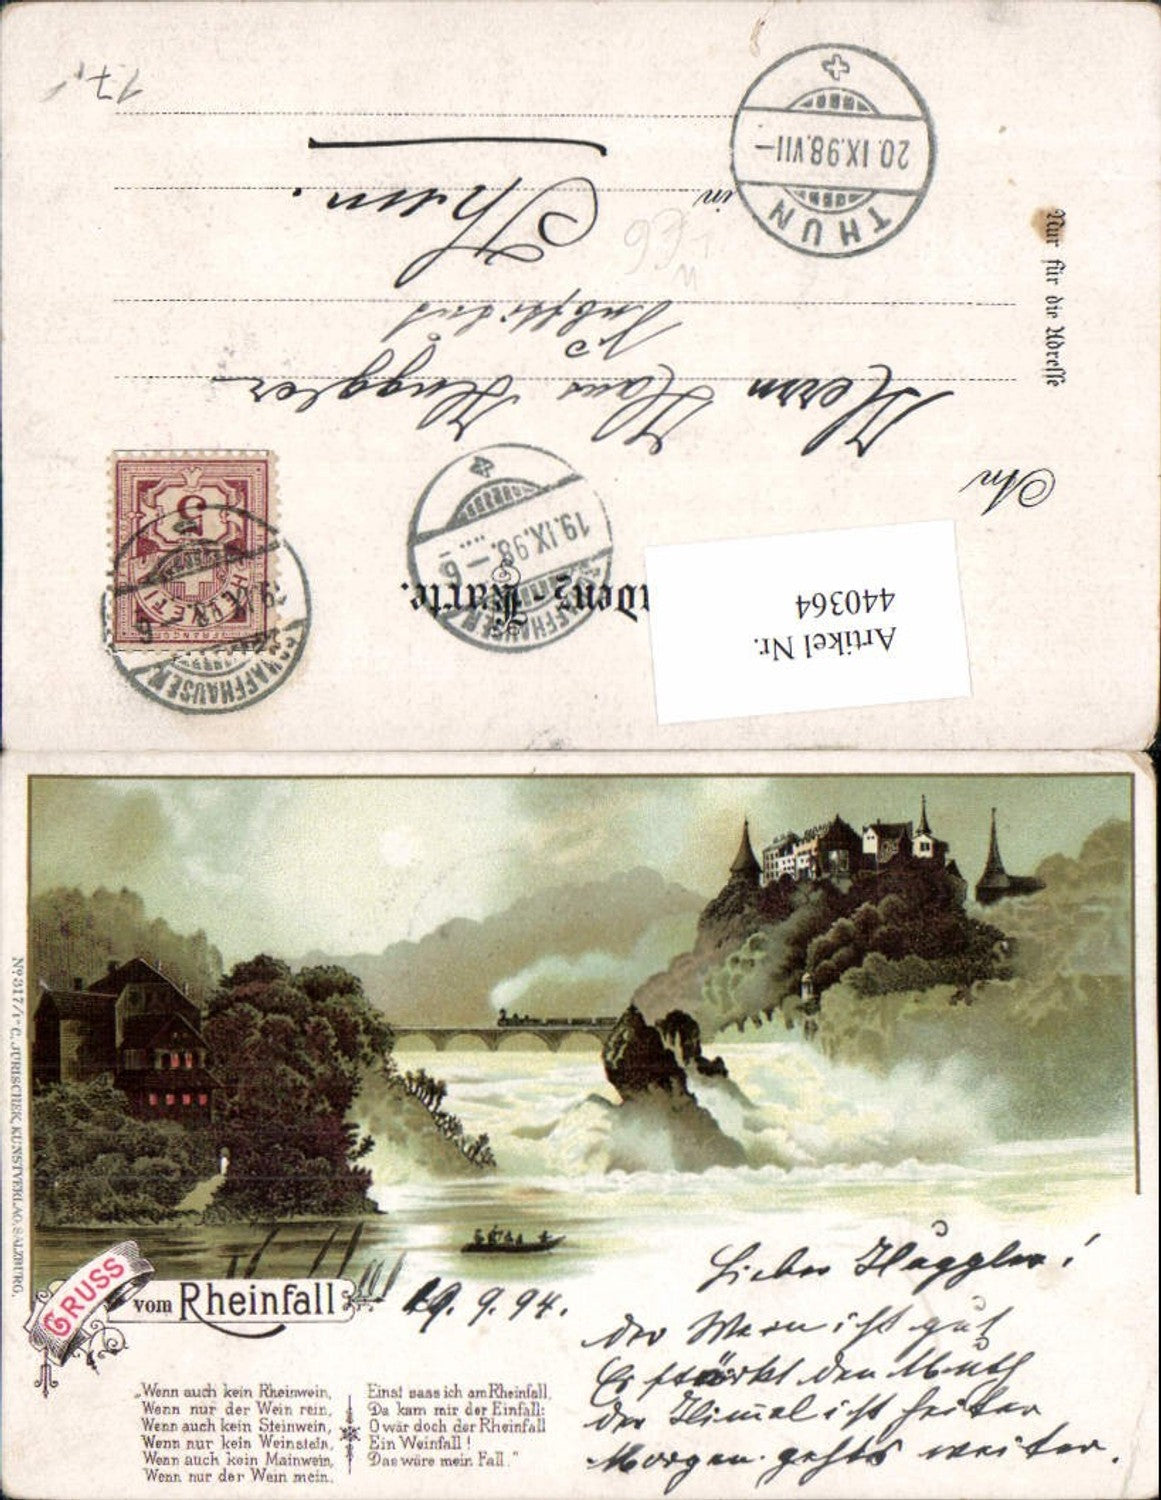 Nur für die Adresse
An
Herrn Hans Huggler
in Thun.
THUN
20.IX.98.VII–
SCHAFFHAUSEN
19.IX.98.–6
HELVETIA
FRANCO
5
SCHAFFHAUSEN
19.IX.98.–6
denz-Karte.
Artikel Nr.
440364
Nº 317/1 - C. JURISCHEK, KUNSTVERLAG, SALZBURG.
GRUSS
vom Rheinfall
19. 9. 94.
„Wenn auch kein Rheinwein,
Wenn nur der Wein rein,
Wenn auch kein Steinwein,
Wenn nur kein Weinstein,
Wenn auch kein Mainwein,
Wenn nur der Wein mein.
Einst sass ich am Rheinfall,
Da kam mir der Einfall:
O wär doch der Rheinfall
Ein Weinfall!
Das wäre mein Fall."
Lieber Huggler!
der Wein ist gut
Er stärkt den Muth
der Himmel ist heiter
Morgen gehts weiter.